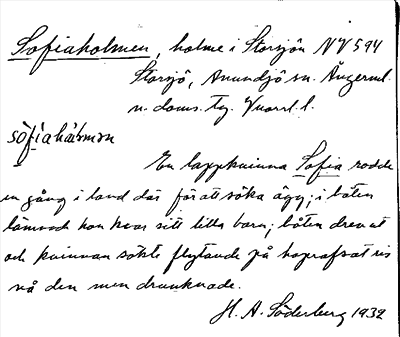 Sofiaholmen, holme i Storsjön NV 594
Storsjö, Anundjö sn. Ångerml.
n. doms. tg. l.
sòfiahálmən
En lappkvinna Sofia rodde
en gång i land där för att söka ägg; i båten
lämnade hon kvar sitt lilla barn; båten drev ut
och kvinnan sökte flytande på hoprafsat ris
nå den men drunknade.
H. A. Söderberg 1932